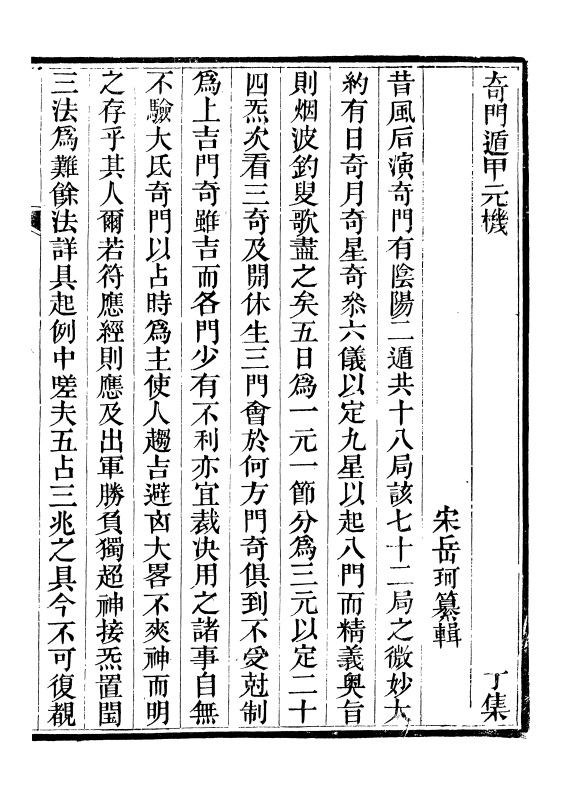 奇門遁甲元機　丁集
宋岳珂纂輯
昔風后演奇門有陰陽二遁共十八局該七十二局之微妙大
約有日奇月奇星奇叅六儀以定九星以起八門而精義奧旨
則烟波釣叟歌盡之矣五日爲一元一節分爲三元以定二十
四炁次看三奇及開休生三門會於何方門奇俱到不受尅制
爲上吉門奇雖吉而各門少有不利亦宜裁決用之諸事自無
不驗大氐奇門以占時爲主使人趨吉避凶大畧不爽神而明
之存乎其人爾若符應經則應及出軍勝負獨超神接炁置閏
三法爲難餘法詳具起例中嗟夫五占三兆之具今不可復覩